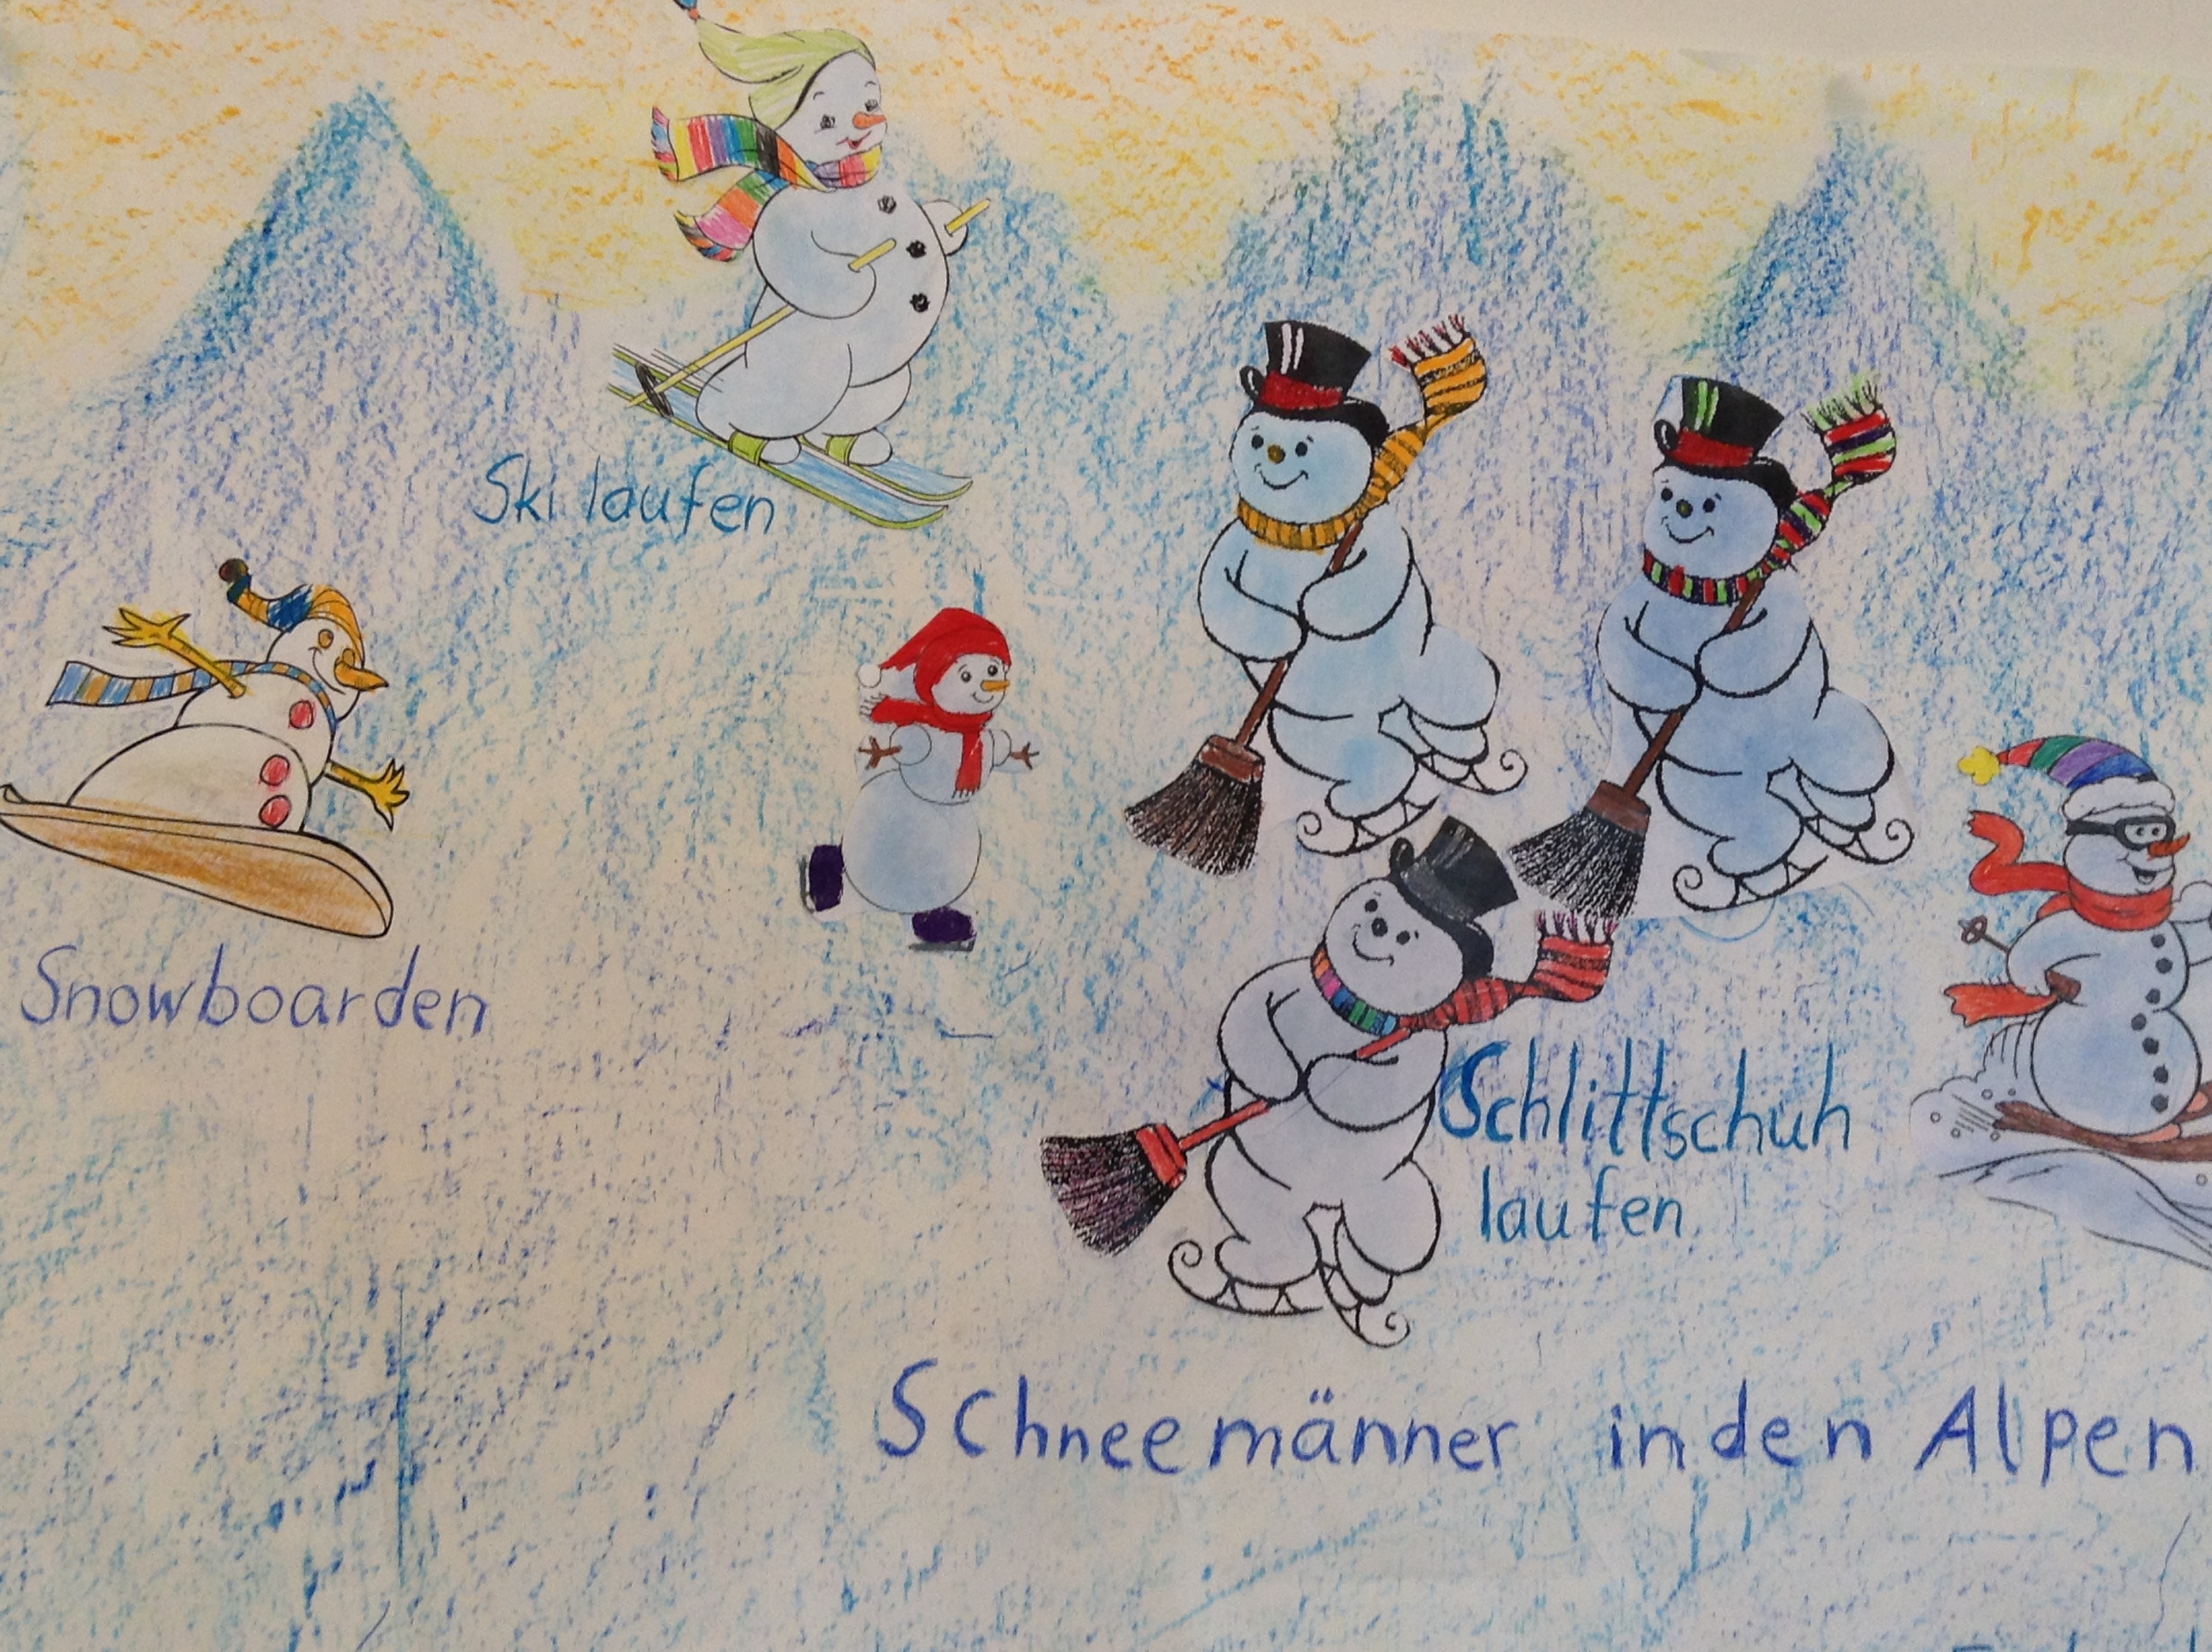 Ski laufen
Snowboarden
Schlittschuh
laufen
Schneemänner in den Alpen